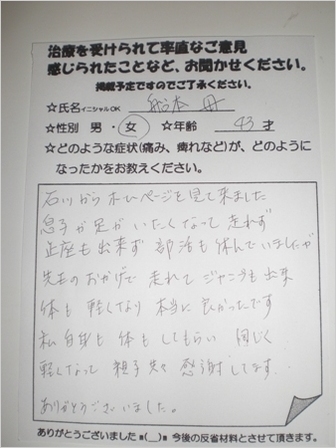 治療を受けられて率直なご意見
感じられたことなど、お聞かせください。
掲載予定ですのでご了承ください。
☆氏名イニシャルOK 船本 母
☆性別 男・女 ☆年齢 43 才
☆どのような症状(痛み、痺れなど)が、どのように
なったかをお教えください。
石川からホムページを見て来ました
息子が足がいたくなって走れず
正座も出来ず 部活も休んでいましたが
先生のおかげで 走れて ジャンプも出来
体も 軽くなり 本当に 良かったです
私自身も 体も してもらい 同じく
軽くなって 親子共々 感謝してます…
ありがとうございました。
ありがとうございました m(__)m 今後の反省材料とさせて頂きます。